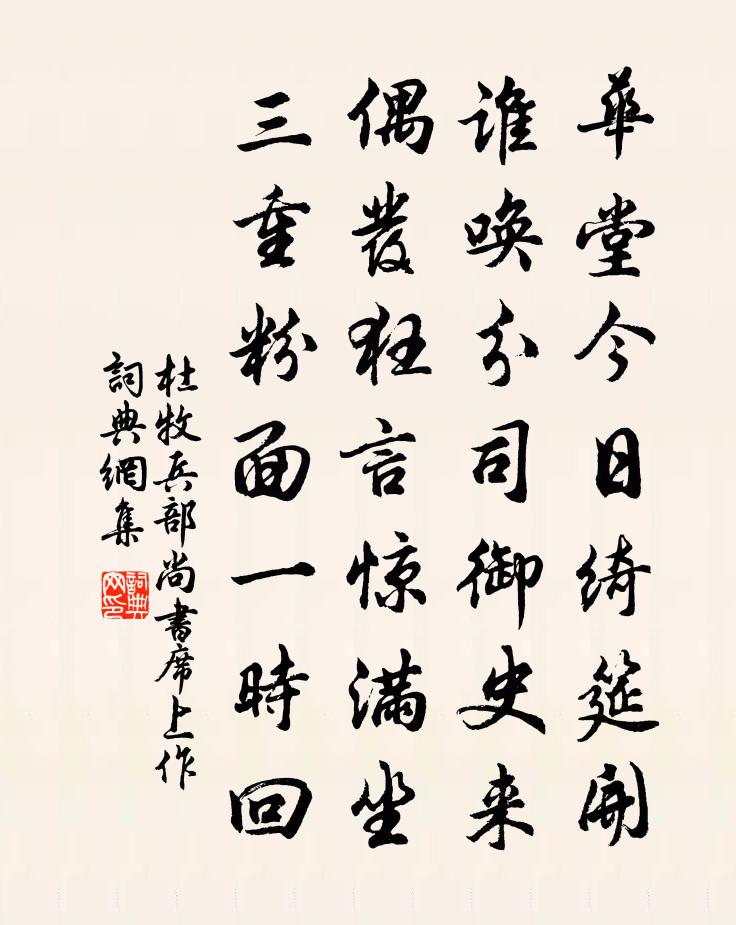 華堂今日綺筵開
誰唤分司御史来
偶發狂言惊滿坐
三重粉面一時回
杜牧兵部尚書席上作
詞典網集
詞典網印